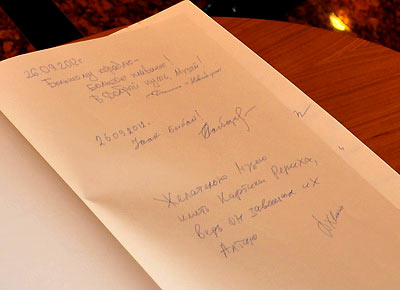 26.09.2012г
Большому кораблю -
Большое плавание!
В добрый путь, Музей!
26.09.2012.
Желательно Музею
иметь Картины Рериха,
Ведь он завещал их
Алтаю